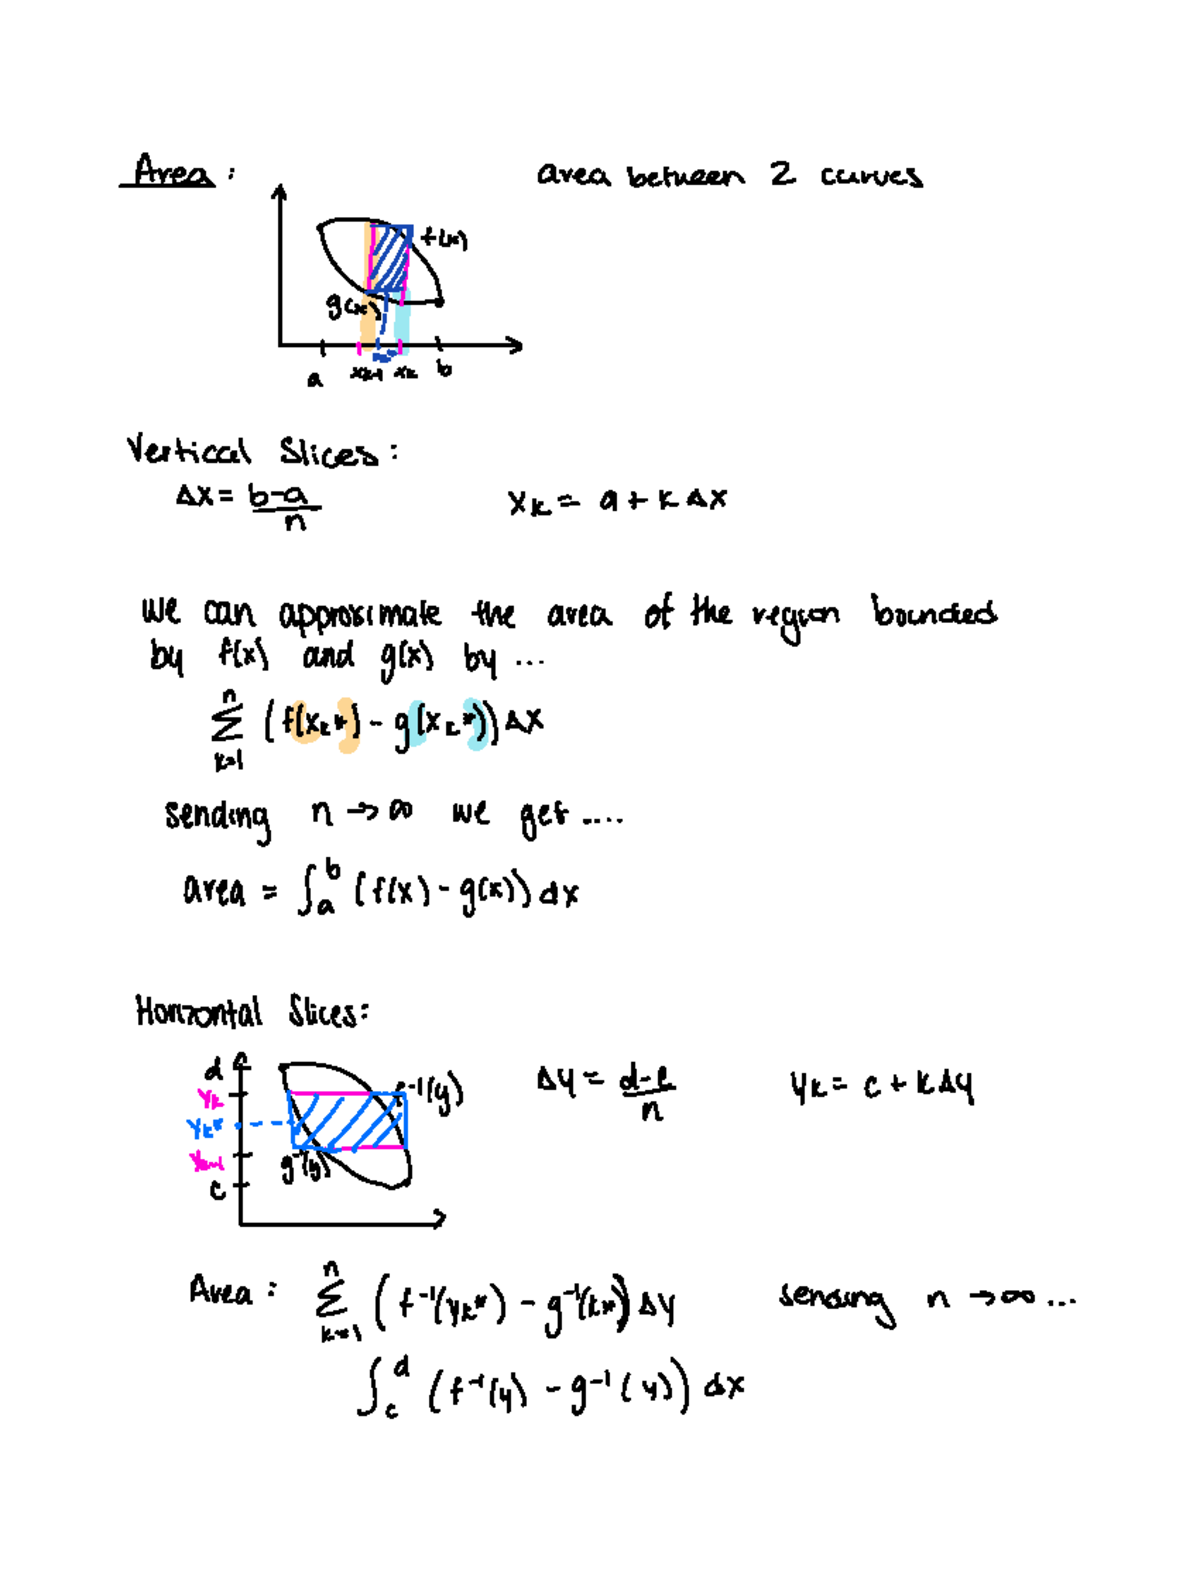 Area :
area between 2 curves
f(x)
g(x)
a xk-1 xk b
Vertical Slices :
Δx = b-a / n
xk = a + kΔx
we can approximate the area of the region bounded
by f(x) and g(x) by ...
n
Σ (f(xk*) - g(xk*)) Δx
k=1
sending n → ∞ we get ....
area = ∫ₐᵇ (f(x) - g(x)) dx
Horizontal Slices:
d
yk
yk*
yk-1
c
f⁻¹(y)
g⁻¹(y)
Δy = d-c / n
yk = c + kΔy
n
Area : Σ (f⁻¹(yk*) - g⁻¹(k*)) Δy
k=1
sending n → ∞ ...
∫cᵈ (f⁻¹(y) - g⁻¹(y)) dx